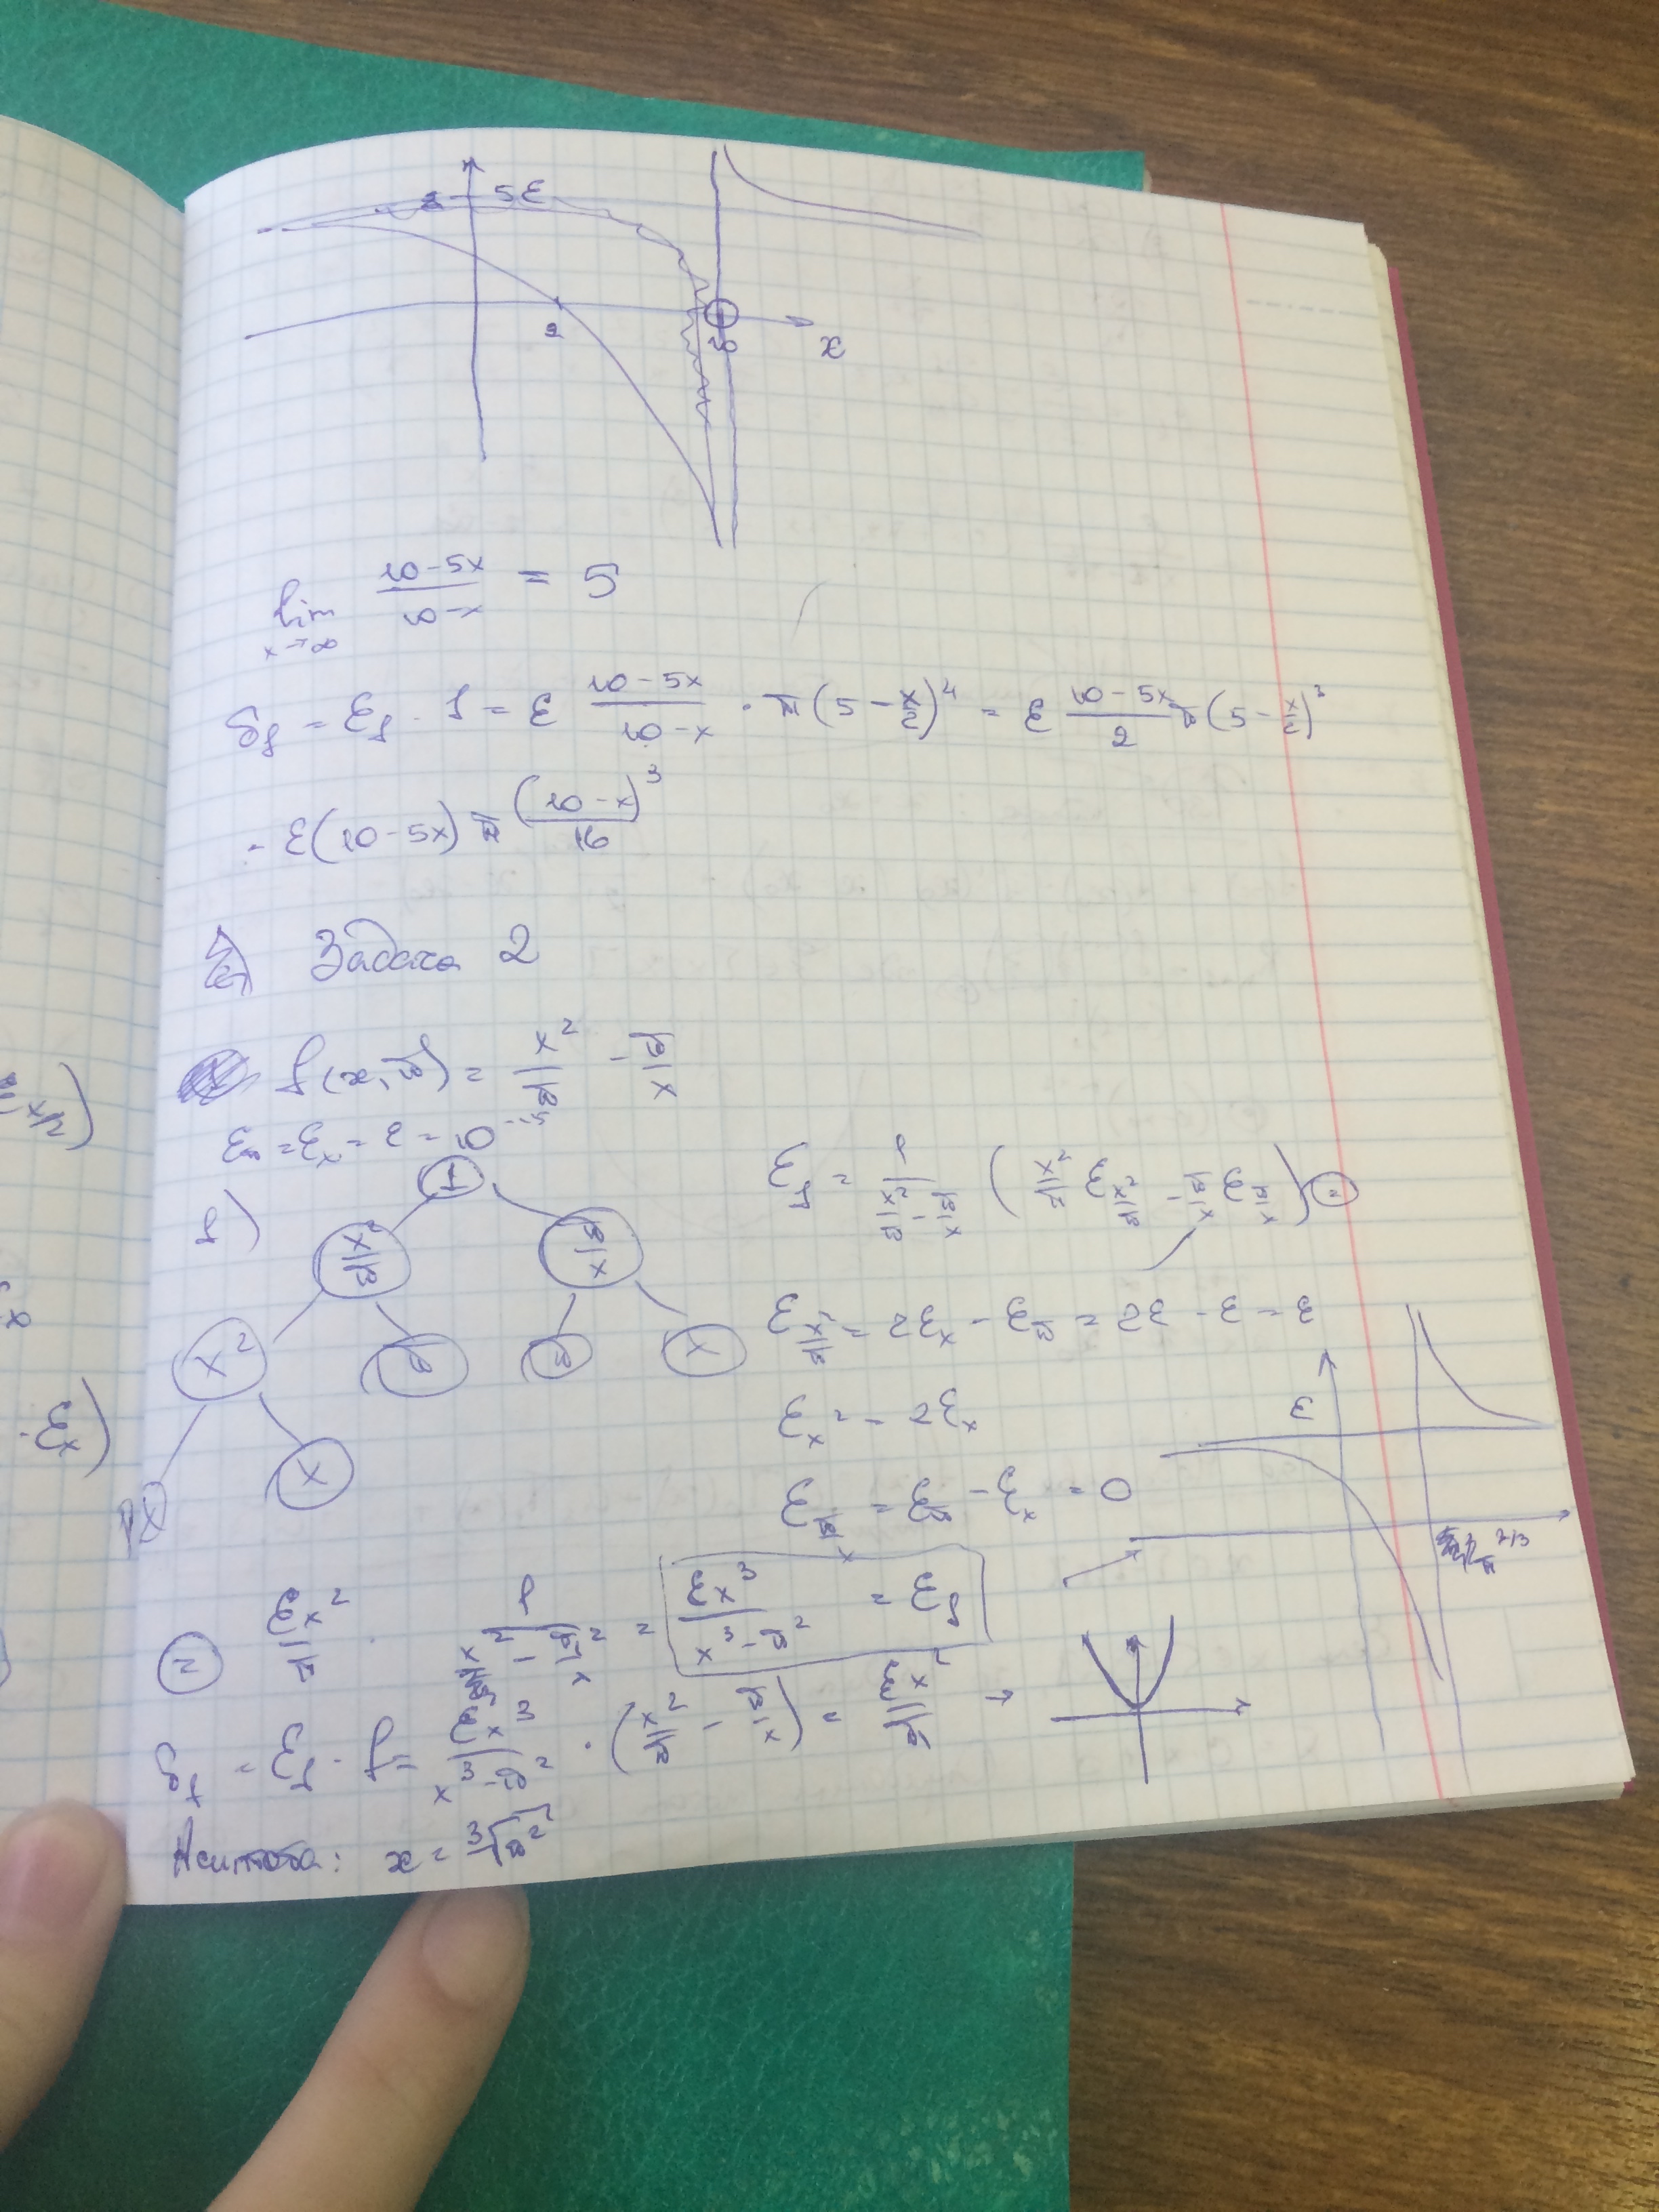 5ε
2
10
x
lim x→∞ (10-5x)/(10-x) = 5
δ_f = ε_f · f = ε (10-5x)/(10-x) · π(5 - x/2)^4 = ε (10-5x)/2 π(5 - x/2)^3
= ε(10-5x) π (10-x)^3/16
Задача 2
f(x, π) = x²/π - π/x
ε_π = ε_x = ε = 10^-5
1)
x²/π
π/x
x²
π
π
x
x
x
ε_f = 1/(x²/π - π/x) (x²/π ε_{x²/π} - π/x ε_{π/x}) =
ε_{x²/π} = 2ε_x - ε_π = 2ε - ε = ε
ε_{x²} = 2ε_x
ε_{π/x} = ε_π - ε_x = 0
ε
π^{2/3}
= εx²/π · 1/(x²/π - π/x) = εx³/(x³-π²) = ε_f
δ_f = ε_f · f = εx³/(x³-π²) · (x²/π - π/x) = εx²/π →
x = ³√π²